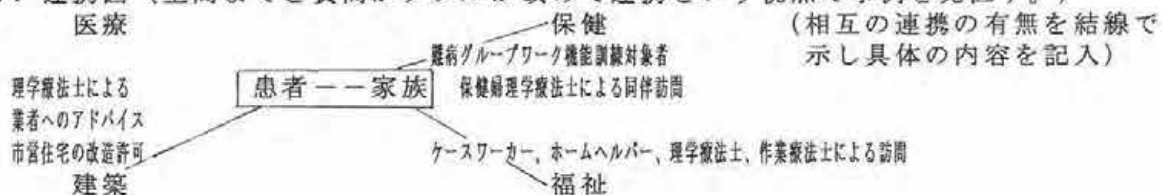 医療
保健
(相互の連携の有無を結線で
示し具体の内容を記入)
難病グループワーク機能訓練対象者
患者――家族
保健婦理学療法士による同伴訪問
理学療法士による
業者へのアドバイス
市営住宅の改造許可
ケースワーカー、ホームヘルパー、理学療法士、作業療法士による訪問
建築
福祉